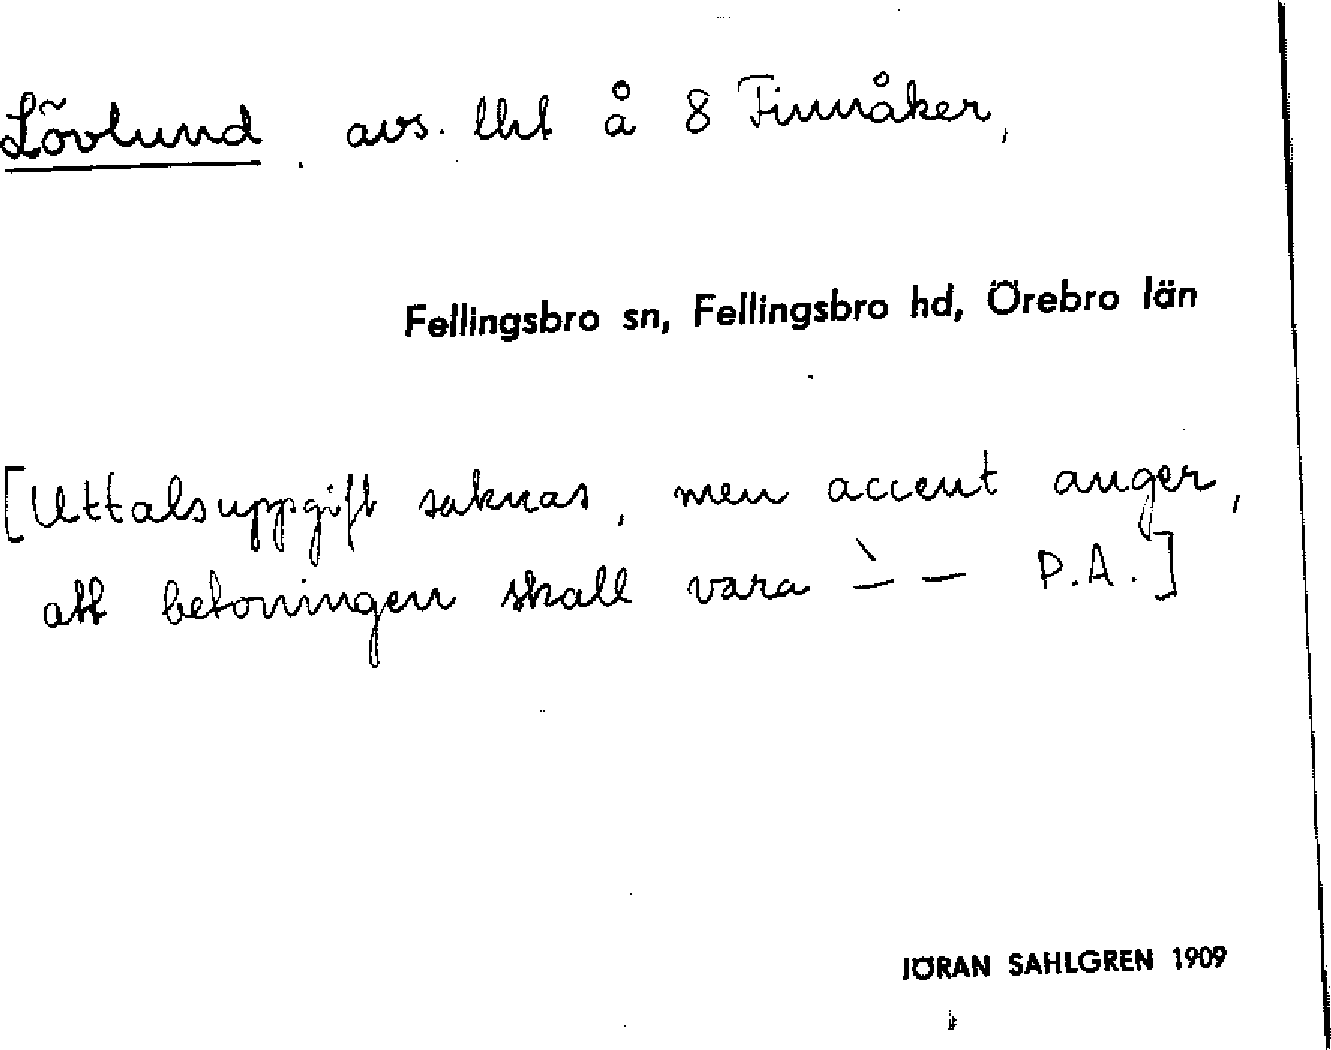 Lövlund, avs. lht å 8 Finnåker,
Fellingsbro sn, Fellingsbro hd, Örebro län
[Uttalsuppgift saknas, men accent anger,
att betoningen skall vara –̀ – P.A.]
JÖRAN SAHLGREN 1909